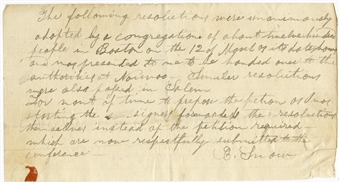 The following resolutions were unanimously
adopted by a congregation of about twelve hundred
people in Boston on the 12 of
are now presented to me to be handed over to the
authorities of Similar resolutions
were also passed in Salem
For want of time to prepare the petition
the resolutions
themselves instead of the petition required
which are now respectfully submitted to the
conference
E. Snow